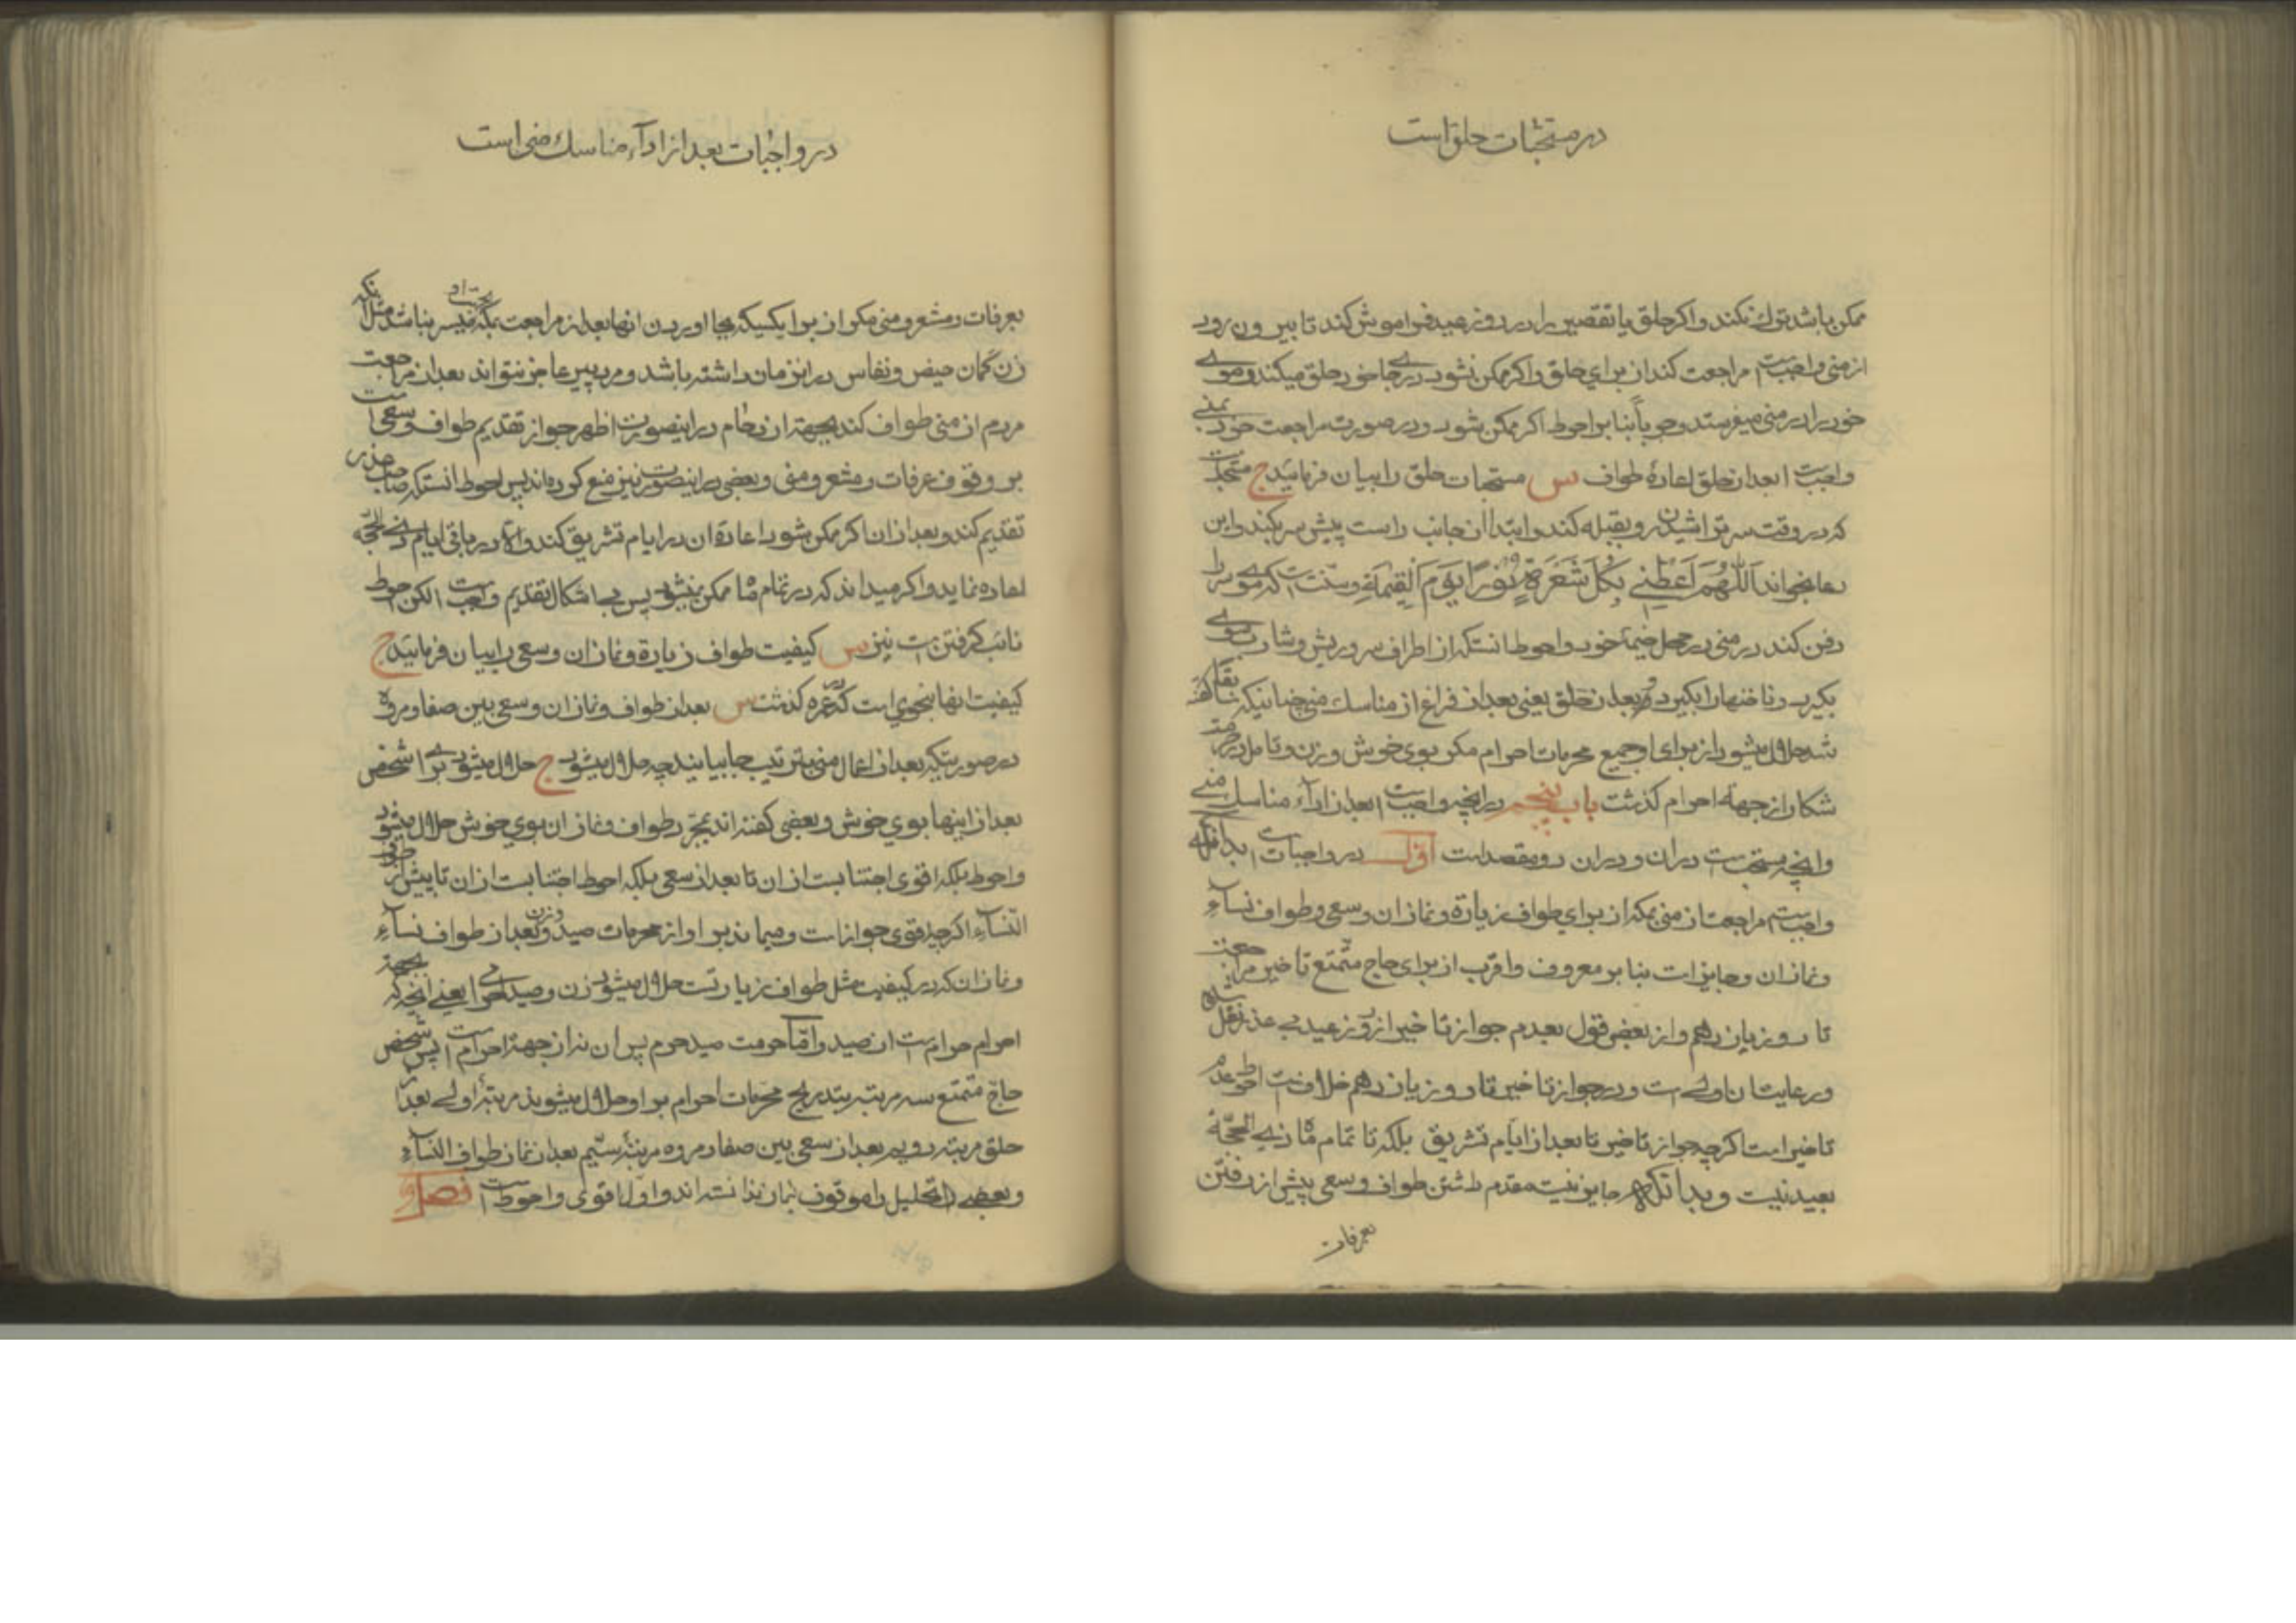 در مستحبات حلق است
ممکن باشد ترك نکند و اکر حلق یا تقصیر را در روز عید فراموش کند تا بیرون رود
از منی واجبست مراجعت کند از برای حلق و اکر ممکن نشود در جای خود حلق میکند و موی
خود را در منی میفرستد وجوباً بنا بر احوط اکر ممکن شود و در صورت مراجعت خود بمنی
واجب است بعد از حلق اعادۀ طواف س مستحبات حلق را بیان فرمائید ج مستحبست
که در وقت سر تراشیدن رو بقبله کند و ابتدا از جانب راست پیش سر بکند و این
دعا بخواند اَللّهُمَّ اَعْطِنی بِکُلِّ شَعْرَةٍ نُورًا یَوْمَ الْقِیٰمَةِ و سنت است که موی سر را
دفن کند در منی در محل خیمۀ خود و احوط انستکه از اطراف سر و ریش و شارب موی
بکیرد و ناخنها را بکیرد و بعد از حلق یعنی بعد از فراغ از مناسك منی چنانیکه سابقا کفته
شد حلال میشود از برای او جمیع محرمات احرام مکر بوی خوش و زن و تامل در حرمت
شکار از جهة احرام کذشت باب پنجم در انچه واجب است بعد از اداء مناسك منی
و انچه مستحب است در ان و در ان دو مقصد است اول در واجبات است بدانکه
واجبست مراجعت از منی بمکه از برای طواف زیارة و نماز ان و سعی و طواف نساء
و نماز ان و جایز است بنا بر معروف و اقرب از برای حاج متمتع تاخیر مراجعت
تا روز یازدهم و از بعضی قول بعدم جواز تاخیر از روز عید بی عذر نقل شده
و رعایت ان اولی است و در جواز تاخیر تا روز یازدهم خلاف است احوط عدم
تاخیر است اکر چه جواز تاخیر تا بعد از ایام تشریق بلکه تا تمام ماه ذی الحجّة
بعید نیست و بدانکه جایز نیست مقدم داشتن طواف و سعی پیش از رفتن
بعرفات
در واجبات بعد از اداء مناسك منی است
بعرفات و مشعر و منی مکر از برای کسیکه بجا اوردن انها بعد از مراجعت بمکه بجهت او میسر نباشد مثل انکه
زن کمان حیض و نفاس در انزمان داشته باشد و مرد پیر عاجز نتواند بعد از مراجعت
مردم از منی طواف کند بجهة ازدحام در اینصورت اظهر جواز تقدیم طواف و سعی است
بر وقوف عرفات و مشعر و منی و بعضی در اینصورت نیز منع کرده اند پس احوط انستکه صاحب عذر
تقدیم کند و بعد از ان اکر ممکن شود اعادۀ ان در ایام تشریق کند و الا در باقی ایام ذی الحجّه
اعاده نماید و اکر میداند که در تمام ماه ممکن نمیشود پس بی اشکال تقدیم واجب است لکن احوط
نائب کرفتن است نیز س کیفیت طواف زیارة و نماز ان و سعی را بیان فرمائید ج
کیفیت انها بنحوی است که در عمره کذشت س بعد از طواف و نماز ان و سعی بین صفا و مروه
در صورتیکه بعد از اعمال منی بترتیب بجا بیاید چه حلال میشود ج حلال میشود بر ان شخص
بعد از اینها بوی خوش و بعضی کفته اند بمجرد طواف و نماز ان بوی خوش حلال میشود
و احوط بلکه اقوی اجتنابست از ان تا بعد از سعی بلکه احوط اجتنابست از ان تا پیش از طواف
النساء اکر چه اقوی جواز است و میماند بر او از محرمات صید و زن و بعد از طواف نساء
و نماز ان که در کیفیت مثل طواف زیارتست حلال میشود زن و صید احرامی یعنی انچه که بجهة
احرام حرام است از صید و اما حرمت صید حرم پس ان نه از جهة احرام است پس شخص
حاج متمتع سه مرتبه بتدریج محرمات احرام بر او حلال میشوند مرتبۀ اولی بعد از
حلق مرتبه دویم بعد از سعی بین صفا و مروه مرتبۀ سیم بعد از نماز طواف النساء
و بعضی تحلیل را موقوف بنماز ندانسته اند و اول اقوی و احوط است فصل